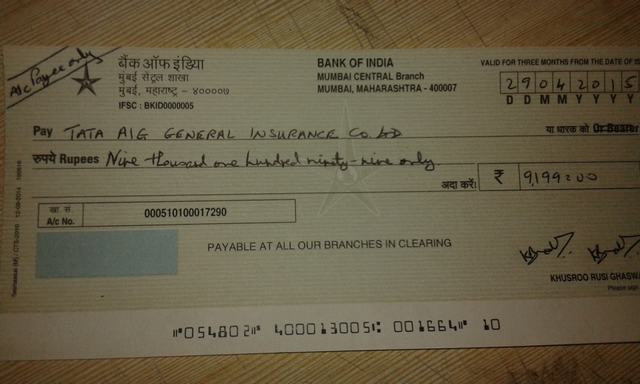 A/c Payee only
बैंक ऑफ इंडिया
मुंबई सेंट्रल शाखा
मुंबई, महाराष्ट्र - ४००००७
IFSC : BKID0000005
BANK OF INDIA
MUMBAI CENTRAL Branch
MUMBAI, MAHARASHTRA - 400007
VALID FOR THREE MONTHS FROM THE DATE OF
29042015
D D M M Y Y Y Y
Pay TATA AIG GENERAL INSURANCE CO. LTD या धारक को Or Bearer
रुपये Rupees Nine thousand one hundred ninety-nine only
अदा करें। ₹ 9,199=00
खा सं.
A/c No. 000510100017290
PAYABLE AT ALL OUR BRANCHES IN CLEARING
KHUSROO RUSI GHASW
Please sign
⑈054802⑈ 400013005⑆ 001664⑈ 10